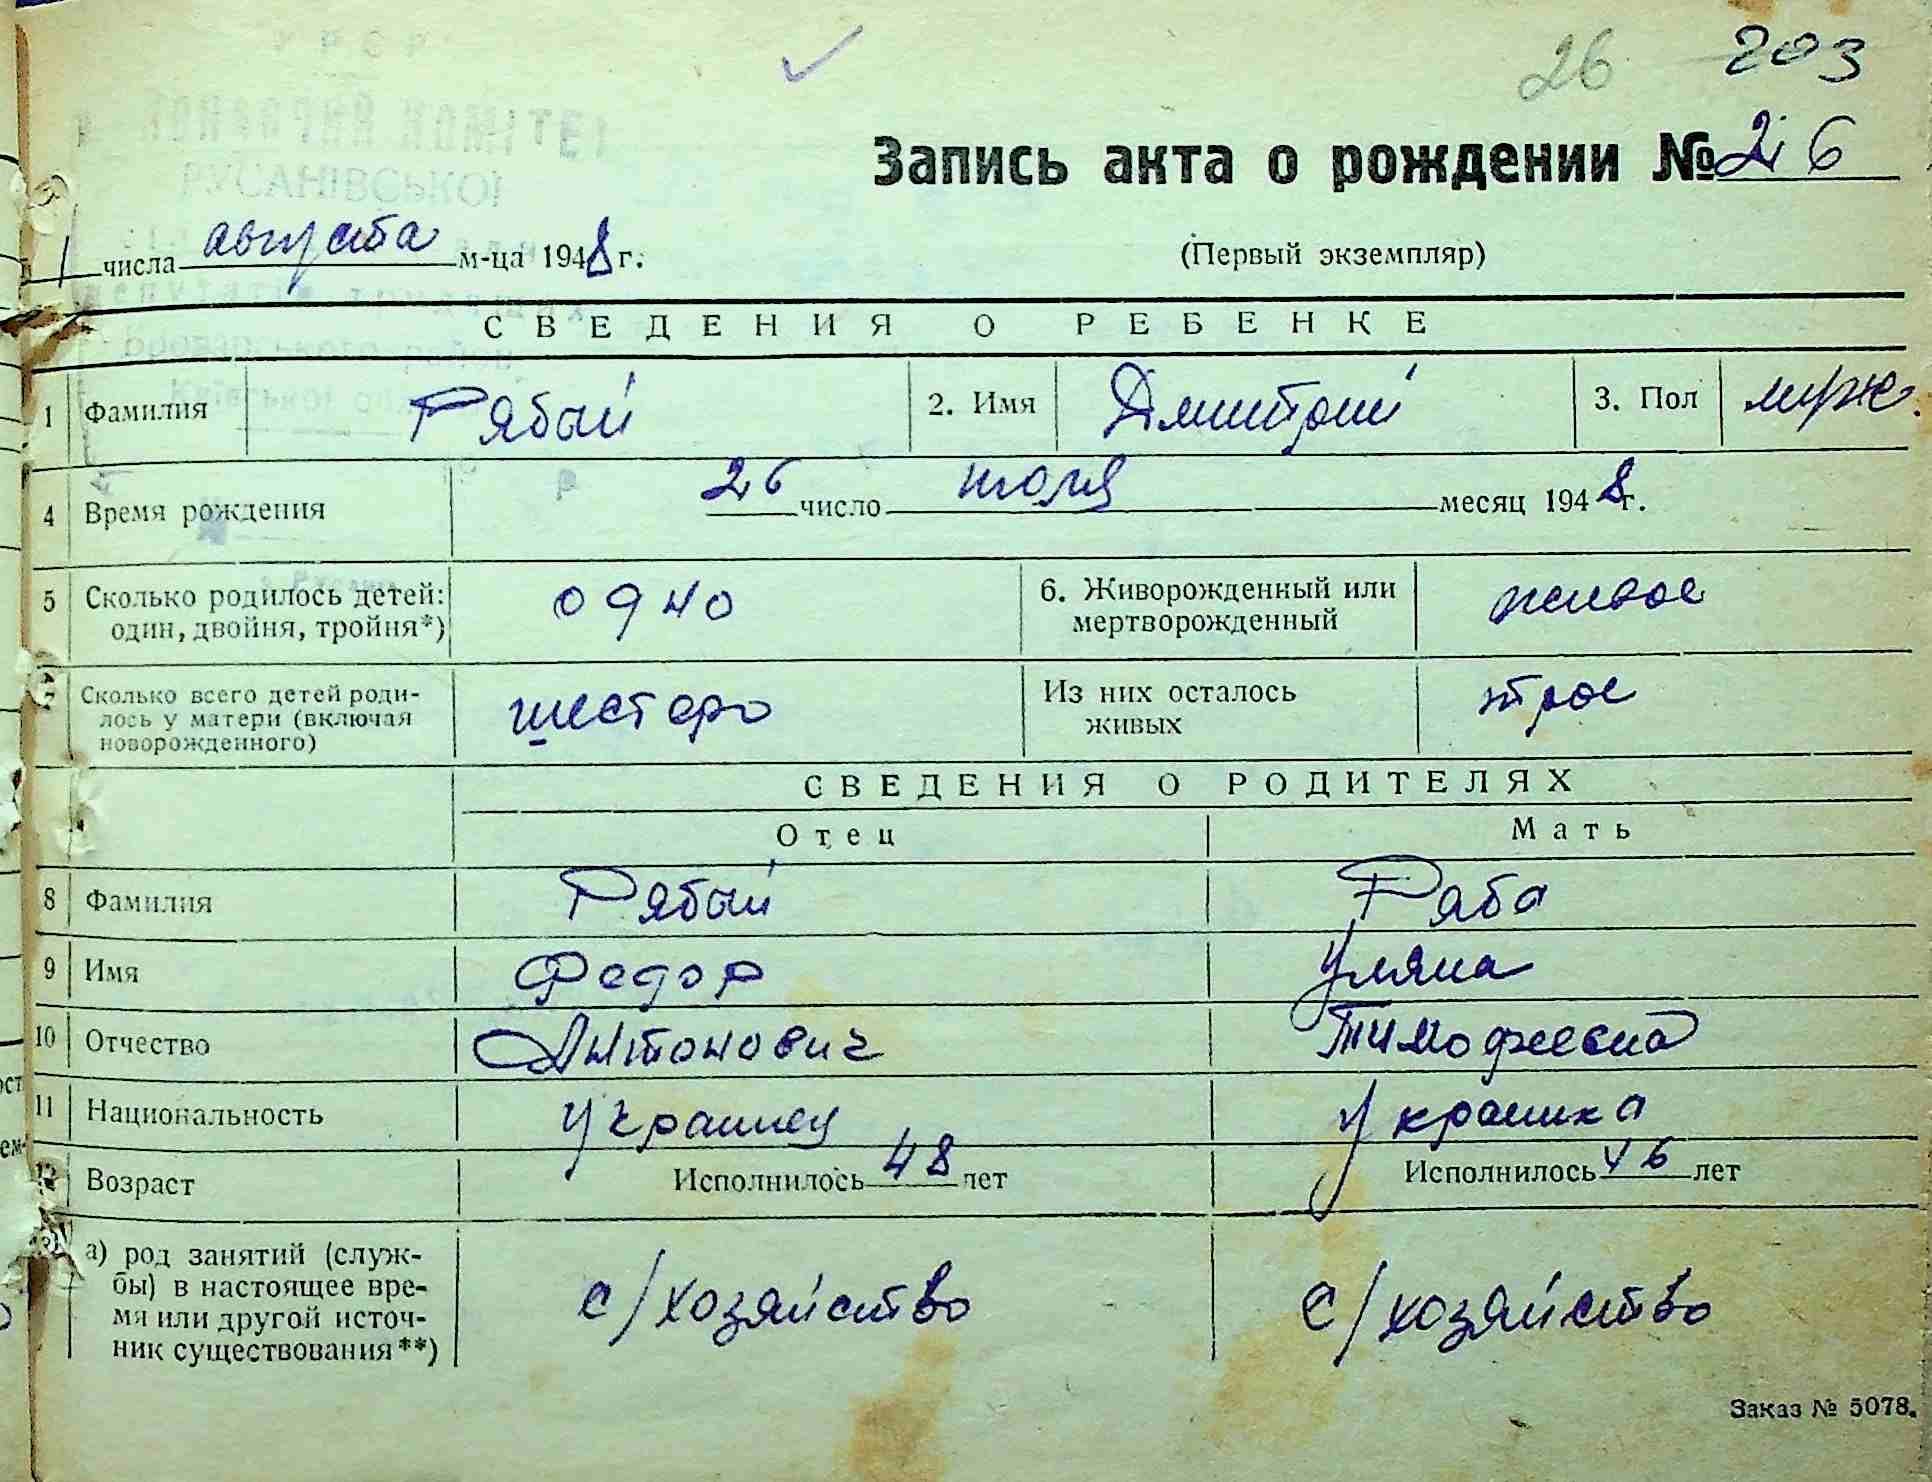 26 203
Запись акта о рождении № 26
1 числа августа м-ца 1948 г.
(Первый экземпляр)
СВЕДЕНИЯ О РЕБЕНКЕ
1 Фамилия Рябый 2. Имя Дмитрий 3. Пол муж.
4 Время рождения 26 число июля месяц 1948 г.
5 Сколько родилось детей: один, двойня, тройня*) одно 6. Живорожденный или мертворожденный живое
7 Сколько всего детей роди-
лось у матери (включая
новорожденного) шестеро Из них осталось живых трое
СВЕДЕНИЯ О РОДИТЕЛЯХ
Отец Мать
8 Фамилия Рябый Ряба
9 Имя Федор Уляна
10 Отчество Антонович Тимофеевна
11 Национальность Украинец Украинка
12 Возраст Исполнилось 48 лет Исполнилось 46 лет
а) род занятий (служ-
бы) в настоящее вре-
мя или другой источ-
ник существования**) с/хозяйство с/хозяйство
Заказ № 5078.